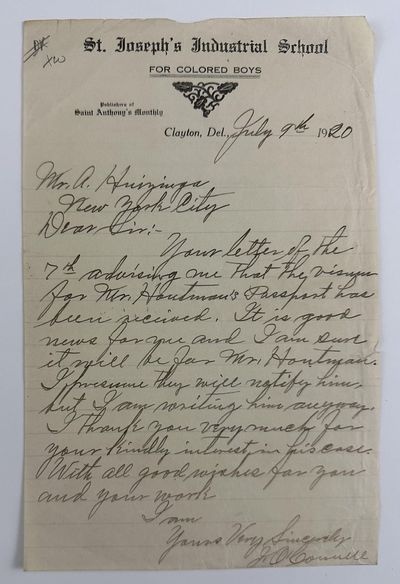 St. Joseph's Industrial School
FOR COLORED BOYS
Publishers of
Saint Anthony's Monthly
Clayton, Del., July 9th 1920
Mr. A. Huizinga
New York City
Dear Sir:-
Your letter of the
7th advising me that the visum
for Mr. Houtman's Passport has
been received. It is good
news for me and I am sure
it will be for Mr. Houtman.
I presume they will notify him,
but I am writing him anyway.
I thank you very much for
your kindly interest in his case.
With all good wishes for you
and your work
I am
Yours Very Sincerely